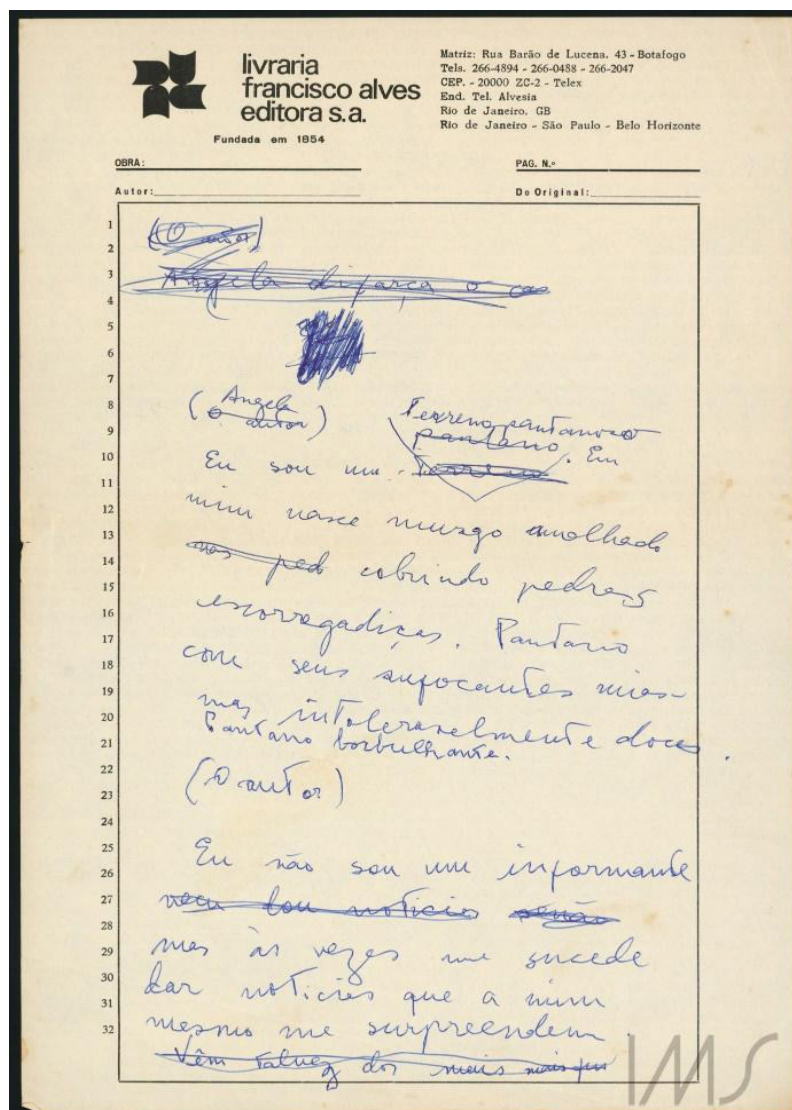 livraria
francisco alves
editora s.a.
Fundada em 1854
Matriz: Rua Barão de Lucena, 43 - Botafogo
Tels. 266-4894 - 266-0488 - 266-2047
CEP. - 20000 ZC-2 - Telex
End. Tel. Alvesia
Rio de Janeiro. GB
Rio de Janeiro - São Paulo - Belo Horizonte
OBRA:
PAG. N.º
Autor:
Do Original:
1
2
3
4
5
6
7
8
9
10
11
12
13
14
15
16
17
18
19
20
21
22
23
24
25
26
27
28
29
30
31
32
(O autor)
Angela disfarça o cas
(Angela
o autor)
Terreno pantanoso
pantano. Em
Eu sou um Terreno
mim nasce musgo molhado
nas ped cobrindo pedras
escorregadiças. Pantano
com seus sufocantes mias-
mas intoleravelmente doces.
Pantano borbulhante.
(O autor)
Eu não sou um informante
nem dou noticias senão
mas às vezes me sucede
dar noticias que a mim
mesmo me surpreendem.
Vêm talvez dos mais mais
IMS